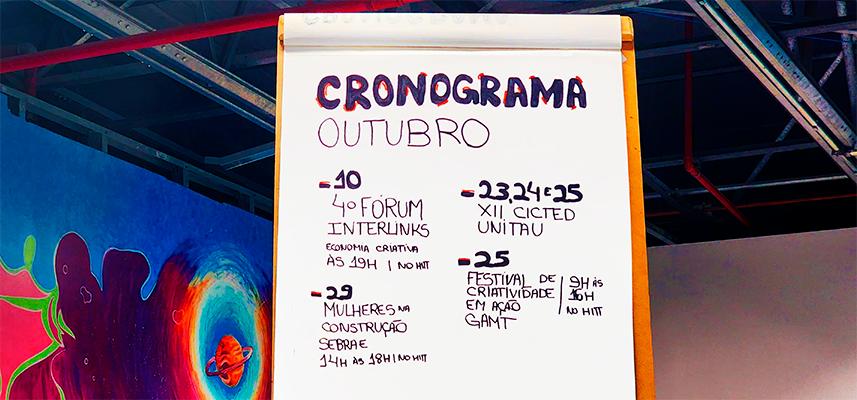 CRONOGRAMA
OUTUBRO
- 10
4º FÓRUM
INTERLINKS
ECONOMIA CRIATIVA
ÀS 19H | NO HITT
- 29
MULHERES NA
CONSTRUÇÃO
SEBRAE
14H ÀS 18H | NO HITT
- 23, 24 E 25
XII CICTED
UNITAU
- 25
FESTIVAL DE
CRIATIVIDADE
EM AÇÃO
GAMT
9H ÀS
16H
NO HITT